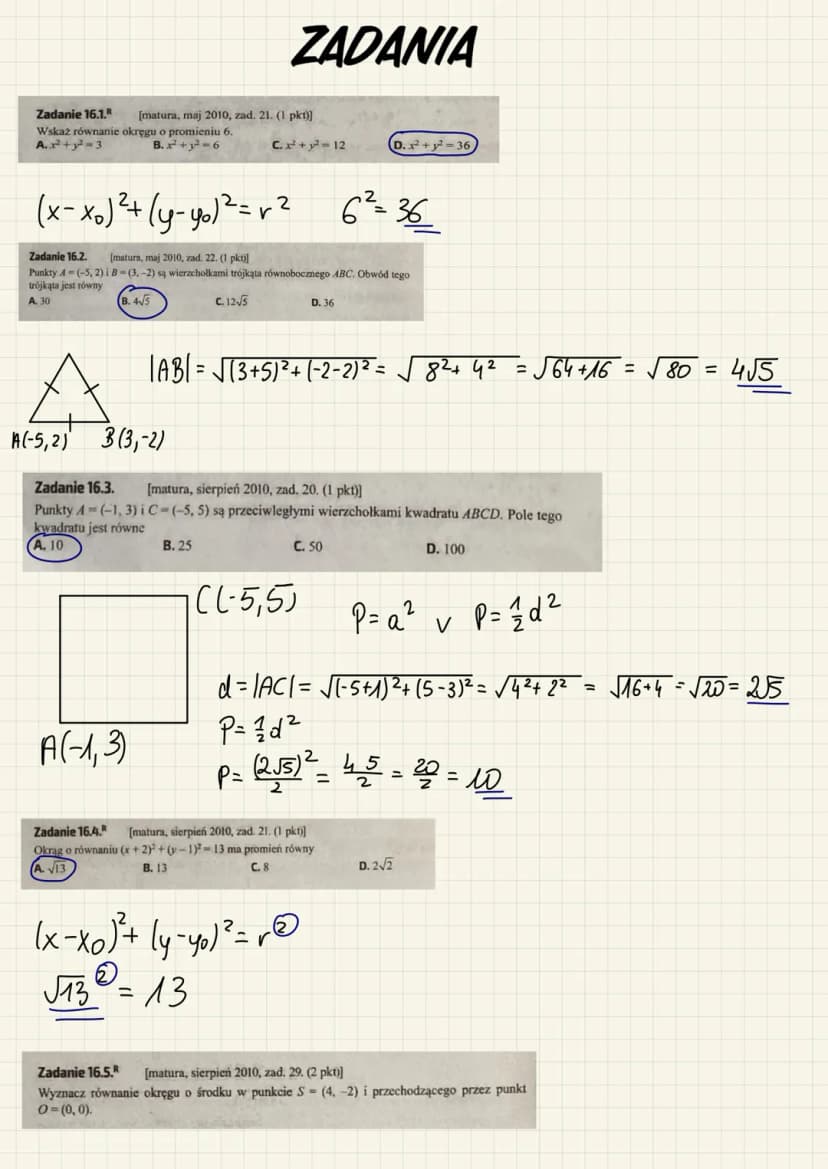 ZADANIA
Zadanie 16.1.ᴿ [matura, maj 2010, zad. 21. (1 pkt)]
Wskaż równanie okręgu o promieniu 6.
A. x² + y² = 3 B. x² + y² = 6 C. x² + y² = 12 D. x² + y² = 36
(x-x₀)²+(y-y₀)²=r² 6²=36
Zadanie 16.2. [matura, maj 2010, zad. 22. (1 pkt)]
Punkty A = (-5, 2) i B = (3, -2) są wierzchołkami trójkąta równobocznego ABC. Obwód tego
trójkąta jest równy
A. 30 B. 4√5 C. 12√5 D. 36
|AB| = √(3+5)²+(-2-2)² = √8²+4² = √64+16 = √80 = 4√5
A(-5,2) B(3,-2)
Zadanie 16.3. [matura, sierpień 2010, zad. 20. (1 pkt)]
Punkty A = (-1, 3) i C = (-5, 5) są przeciwległymi wierzchołkami kwadratu ABCD. Pole tego
kwadratu jest równe
A. 10 B. 25 C. 50 D. 100
C(-5,5) P=a² v P=½d²
d=|AC|= √(-5+1)²+(5-3)² = √4²+2² = √16+4 = √20 = 2√5
P=½d²
A(-1,3)
P= (2√5)²/2 = 4 5/2 = 20/2 = 10
Zadanie 16.4.ᴿ [matura, sierpień 2010, zad. 21. (1 pkt)]
Okrąg o równaniu (x + 2)² + (y - 1)² = 13 ma promień równy
A. √13 B. 13 C. 8 D. 2√2
(x-x₀)²+(y-y₀)²=r²
√13² = 13
Zadanie 16.5.ᴿ [matura, sierpień 2010, zad. 29. (2 pkt)]
Wyznacz równanie okręgu o środku w punkcie S = (4, -2) i przechodzącego przez punkt
O = (0, 0).